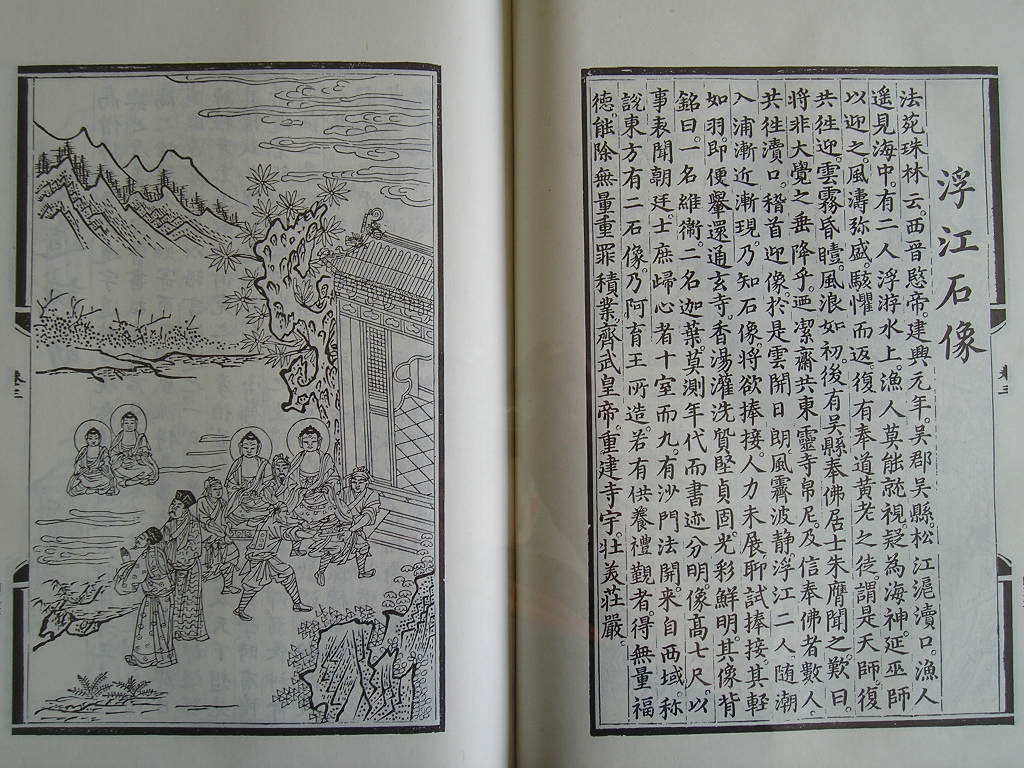 浮江石像
法苑珠林云。西晉愍帝。建興元年。吳郡吳縣。松江滬瀆口。漁人
遙見海中。有二人浮游水上。漁人莫能就視。疑為海神。延巫師
以迎之。風濤弥盛。駭懼而返。復有奉道黃老之徒。謂是天師。復
共往迎。雲霧昏曀。風浪如初。後有吳縣奉佛居士朱膺聞之。歎曰。
將非大覺之垂降乎。迺潔齋共東靈寺帛尼。及信奉佛者數人。
共往瀆口。稽首迎像。於是雲開日朗。風霽波静。浮江二人。随潮
入浦漸近漸現。乃知石像。將欲捧接。人力未展。聊試捧接。其輕
如羽。即便轝還通玄寺。香湯灌洗。質堅貞固。光彩鮮明。其像背
銘曰。一名維衛。二名迦葉。莫測年代。而書迹分明。像高七尺。以
事表聞朝廷。士庶歸心者十室而九。有沙門法開。來自西域。称
說東方有二石像。乃阿育王所造。若有供養禮觀者。得無量福
德。能除無量重罪積業。齊武皇帝。重建寺宇。壯美莊嚴。
卷三